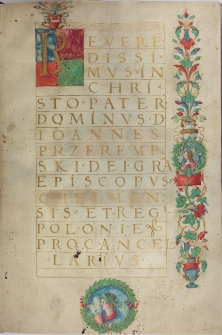 REVERE
DISSI
MVS·IN
CHRI
STO·PATER
DOMINVS·D
IOANNES
PRZEREMP
SKI·DEI·GRA
EPISCOPVS
CHELMEN
SIS·ET·REG
POLONIE
PROCANCEL
LARIVS·